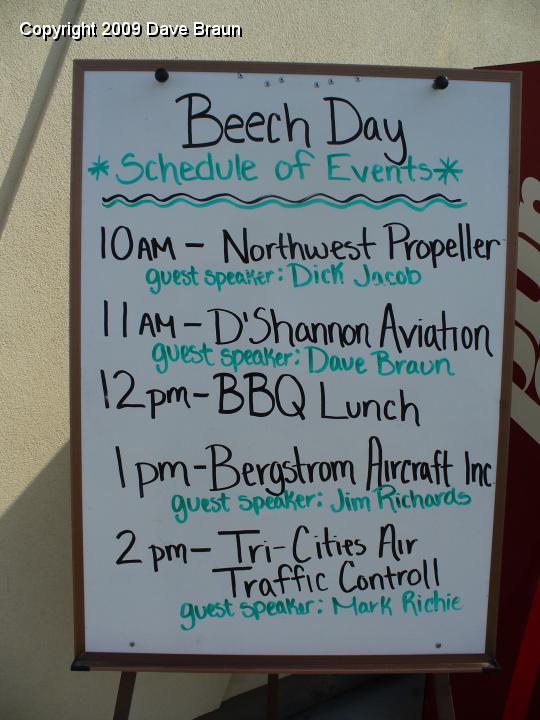 Copyright 2009 Dave Braun
Beech Day
*Schedule of Events*
10AM - Northwest Propeller
guest speaker: Dick Jacob
11AM - D'Shannon Aviation
guest speaker: Dave Braun
12pm - BBQ Lunch
1pm - Bergstrom Aircraft Inc
guest speaker: Jim Richards
2pm - Tri-Cities Air
Traffic Controll
guest speaker: Mark Richie